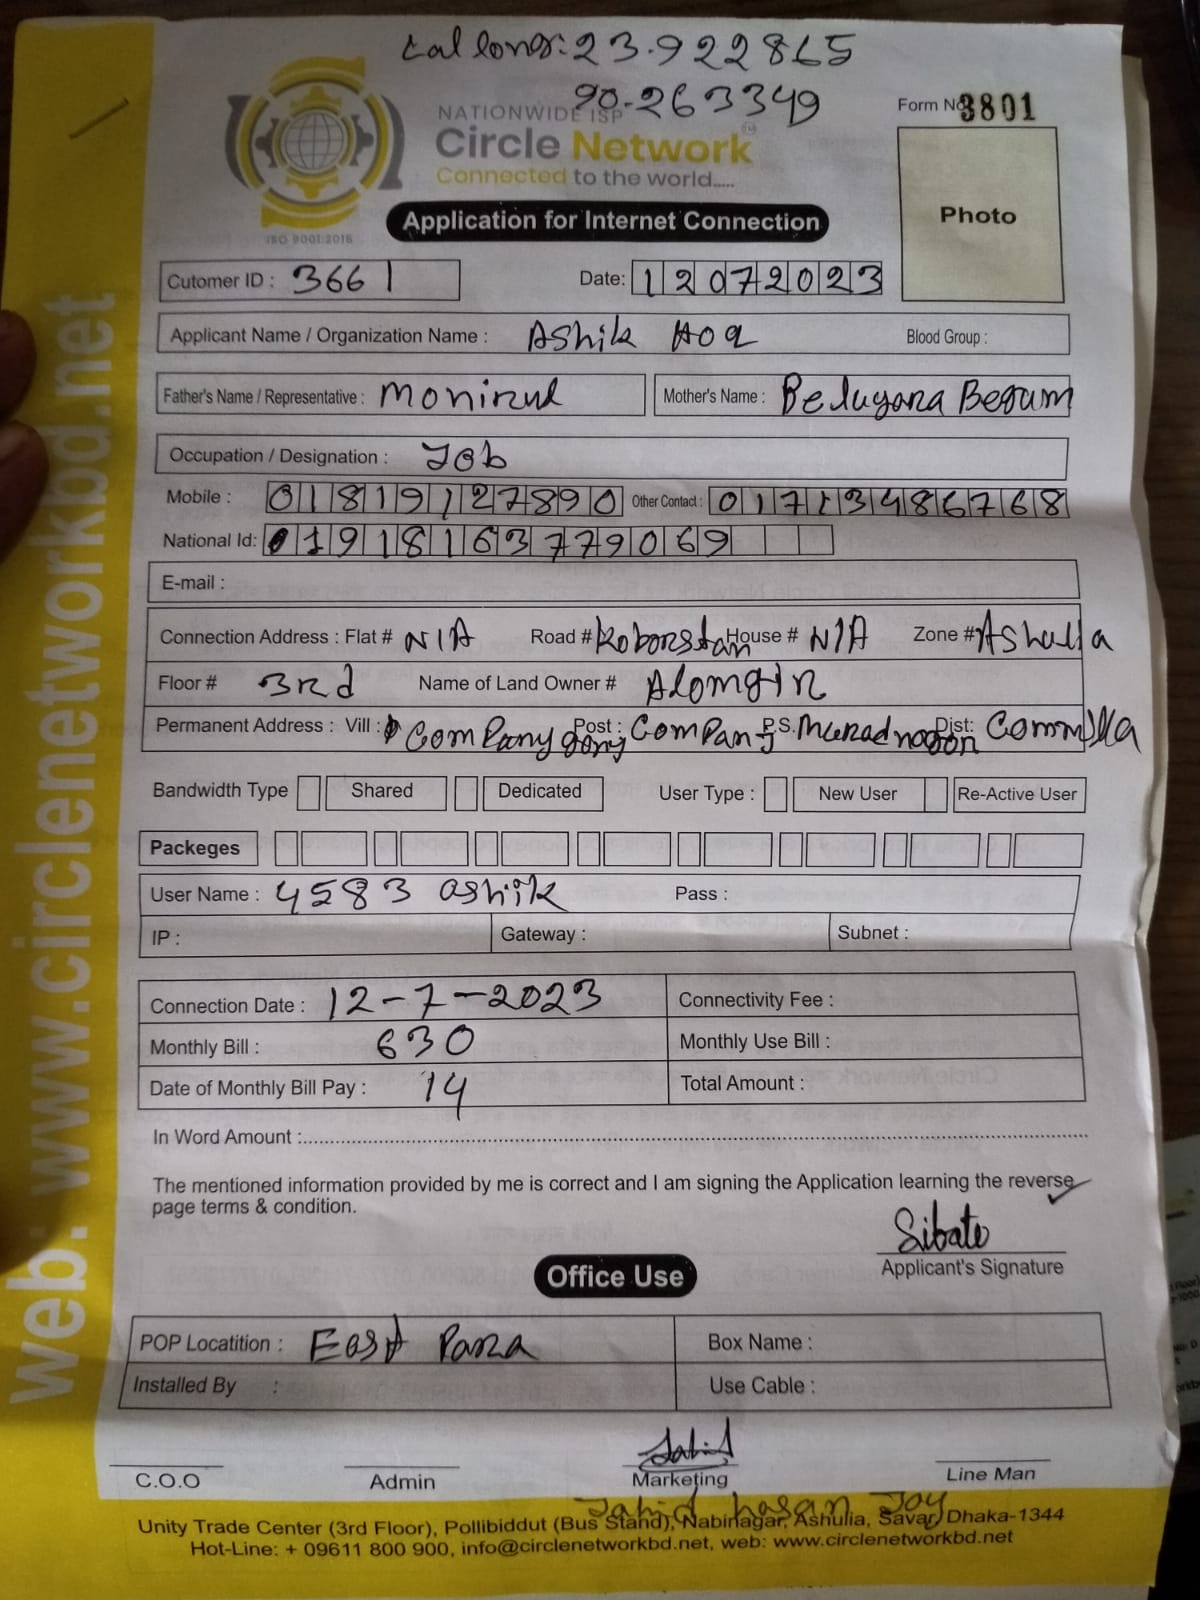 Lat long: 23.922865
90.263349
NATIONWIDE ISP
Form No 3801
Circle Network
Connected to the world.....
ISO 9001:2015
Application for Internet Connection
Photo
Cutomer ID : 3661 Date: 12072023
Applicant Name / Organization Name : Ashik Hoq Blood Group :
Father's Name / Representative : Monirul Mother's Name : Beluyara Begum
Occupation / Designation : Job
Mobile : 01819127890 Other Contact : 01713486768
National Id: 1918163779069
E-mail :
Connection Address : Flat # N/A Road # Koborstan House # N/A Zone # Ashulia
Floor # 3rd Name of Land Owner # Alomgir
Permanent Address : Vill : Company gonj Post : Company P.S. Muradnogon Dist: Commilla
Bandwidth Type Shared Dedicated User Type : New User Re-Active User
Packeges
User Name : 4583 ashik Pass :
IP : Gateway : Subnet :
Connection Date : 12-7-2023 Connectivity Fee :
Monthly Bill : 630 Monthly Use Bill :
Date of Monthly Bill Pay : 14 Total Amount :
In Word Amount :
The mentioned information provided by me is correct and I am signing the Application learning the reverse
page terms & condition.
Sibato
Applicant's Signature
Office Use
POP Locatition : East Para Box Name :
Installed By : Use Cable :
C.O.O Admin Marketing Line Man
Jahid hasan Joy
Unity Trade Center (3rd Floor), Pollibiddut (Bus Stand), Nabinagar, Ashulia, Savar, Dhaka-1344
Hot-Line: + 09611 800 900, info@circlenetworkbd.net, web: www.circlenetworkbd.net
web: www.circlenetworkbd.net